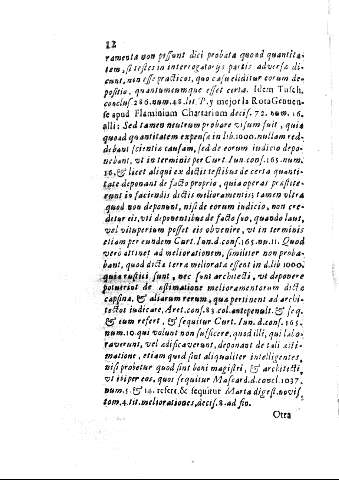 12
ramenta non possunt dici probata quoad quantita-
tem, si testes in interrogatorijs partis adversæ di-
cunt, non esse practicos, quo casu eliditur eorum de-
positio, quantumcumque esset certa. Idem Tusch.
conclus. 286. num. 48. lit. P. y mejor la Rota Genuen-
se apud Flaminium Chartarium decis. 72. num. 16.
alli: Sed tamen neutrum probare visum fuit, quia
quoad quantitatem expensa in lib. 1000. nullam red-
debant scientia causam, sed de eorum iudicio depo-
nebant, vt in terminis per Curt. Iun. conf. 165. num.
16. & licet aliqui ex dictis testibus de certa quanti-
tate deponant de facto proprio, quia operas præstite-
runt in faciendis dictis melioramentis, tamen vltra
quod non deponunt, nisi de eorum iudicio, non cre-
ditur eis, vti deponentibus de facto suo, quando laus,
vel vituperium posset eis obvenire, vt in terminis
etiam per eundem Curt. Iun. d. conf. 165. nu. 11. Quod
vero attinet ad meliorationem, similiter non proba-
bant, quod dicta terra meliorata essent in d. lib. 1000.
quia rustici sunt, nec sunt architecti, vt deponere
potuerint de æstimatione melioramentorum dicto
capsina, & aliarum rerum, qua pertinent ad archi-
tectos iudicare, Aret. conf. 83. col. antepenult. & seq.
& eum refert, & sequitur Curt. Iun. d. conf. 165.
num. 10. qui volunt non sufficere, quod illi, qui labo-
raverunt, vel ædificaverunt, deponant de tali æsti-
matione, etiam quod sint aliqualiter intelligentes,
nisi probetur quod sint boni magistri, & architecti,
vt in per eos, quos sequitur Mascard. d. concl. 1037.
num. & 14. refert, & sequitur Marta digest. novis.
tom. 4. tit. meliorationes, decis. 8. ad fin.
Otra